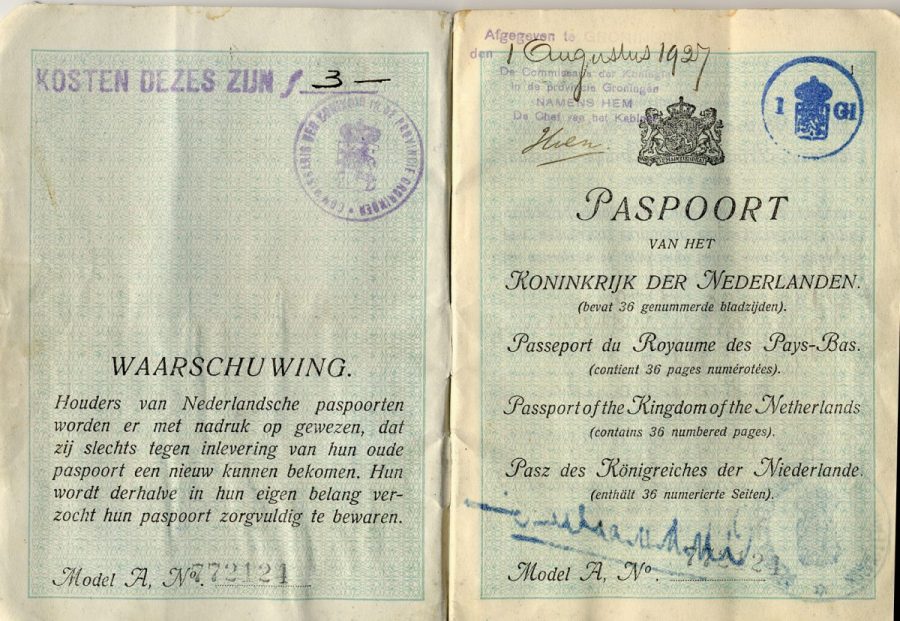 KOSTEN DEZES ZIJN f 3 —
COMMISSARIS DER KONINGIN IN DE PROVINCIE GRONINGEN
WAARSCHUWING.
Houders van Nederlandsche paspoorten
worden er met nadruk op gewezen, dat
zij slechts tegen inlevering van hun oude
paspoort een nieuw kunnen bekomen. Hun
wordt derhalve in hun eigen belang ver-
zocht hun paspoort zorgvuldig te bewaren.
Model A, No. 772124
Afgegeven te GRONINGEN
den 1 Augustus 1927
De Commissaris der Koningin
in de provincie Groningen
NAMENS HEM
De Chef van het Kabinet
1 GI
PASPOORT
VAN HET
KONINKRIJK DER NEDERLANDEN.
(bevat 36 genummerde bladzijden).
Passeport du Royaume des Pays-Bas.
(contient 36 pages numérotées).
Passport of the Kingdom of the Netherlands
(contains 36 numbered pages).
Pasz des Königreiches der Niederlande.
(enthält 36 numerierte Seiten).
Model A, No. 772124